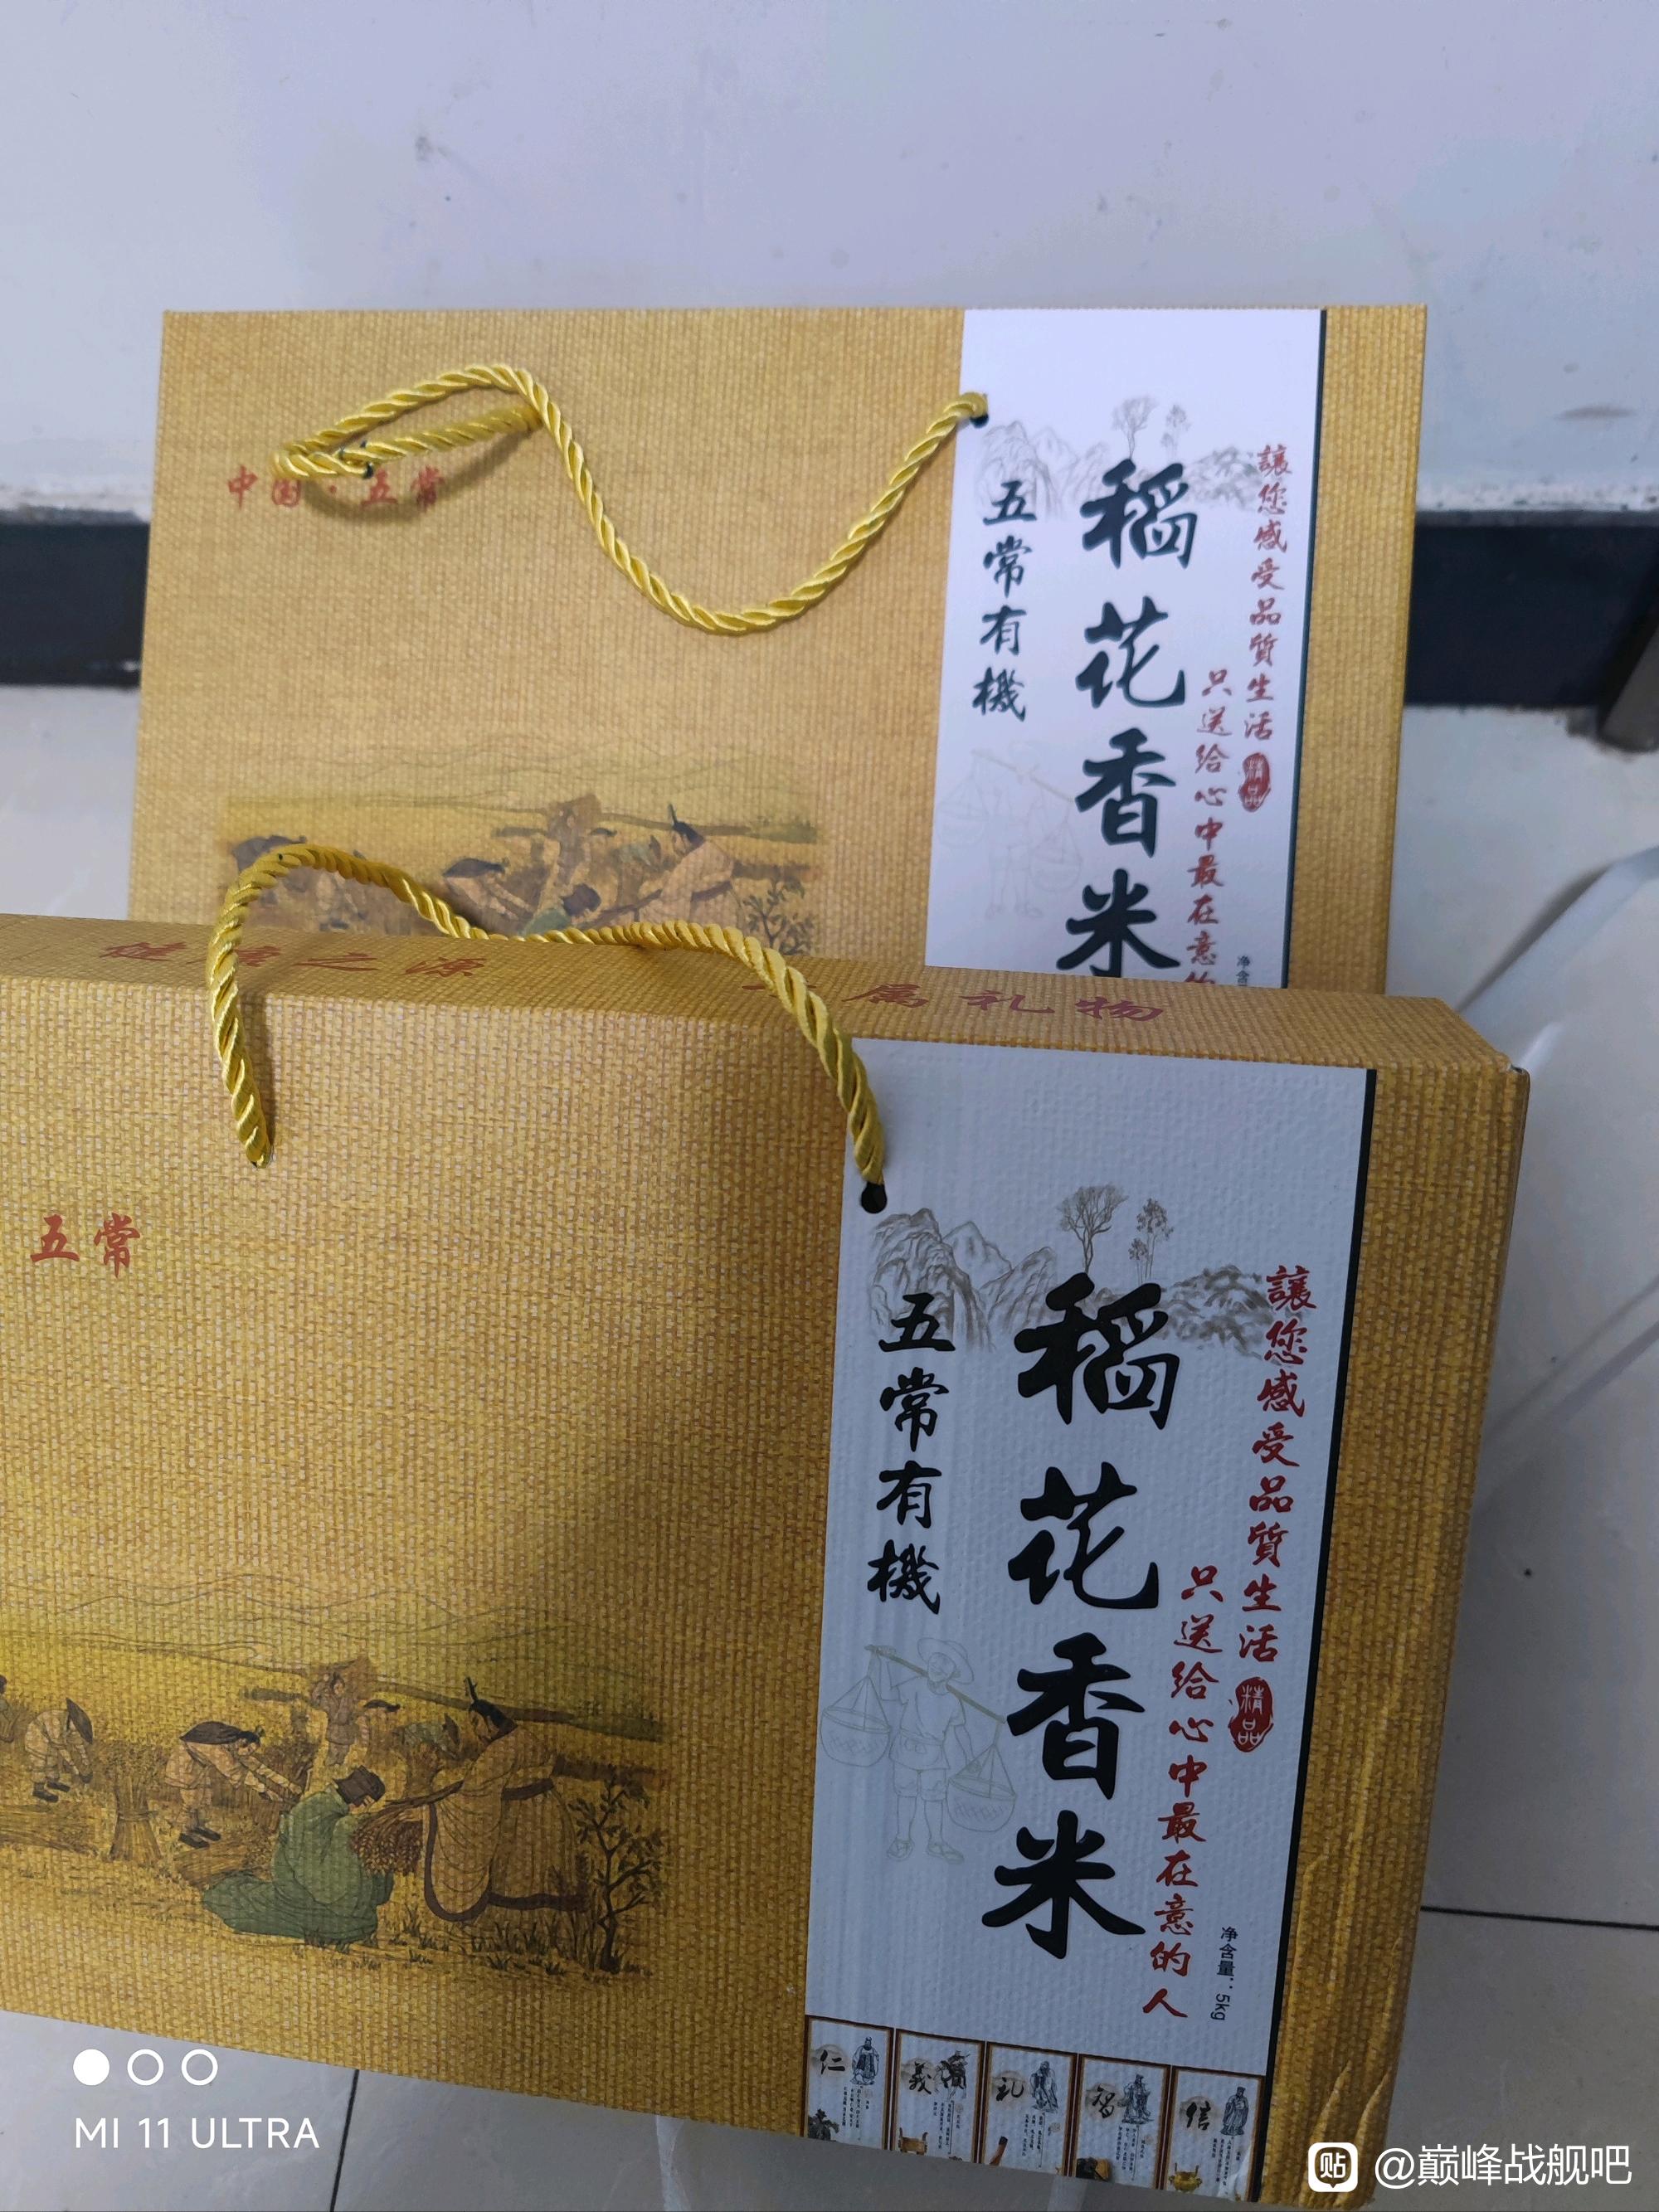 中国·五常
五常有機
稻花香米
讓您感受品質生活
只送给心中最在意的
精品
净含
健康之源
属礼物
五常
五常有機
稻花香米
讓您感受品質生活
只送给心中最在意的人
精品
净含量：5kg
仁
義
礼
智
信
MI 11 ULTRA
贴 @巅峰战舰吧